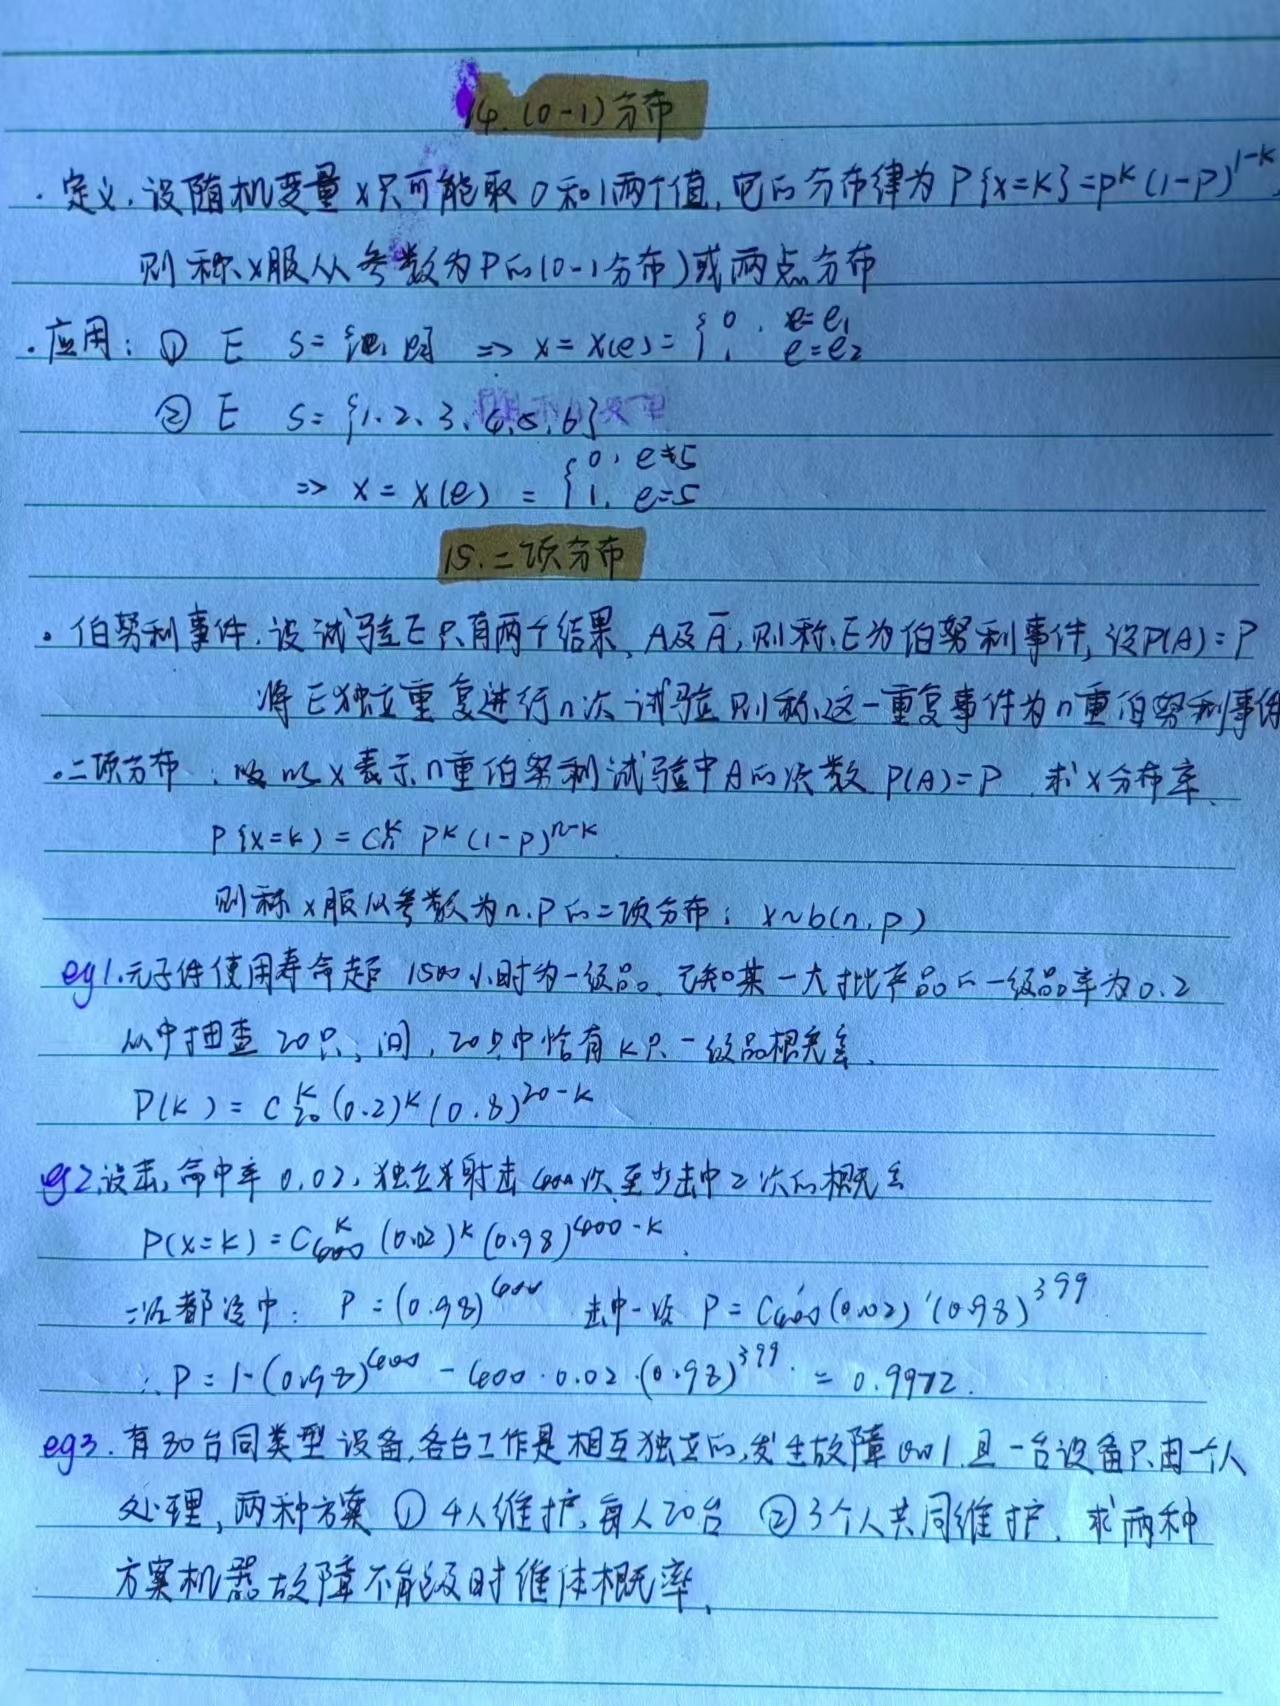 14. (0-1)分布
· 定义. 设随机变量x只可能取0和1两个值, 它的分布律为P{x=k}=p^k(1-p)^{1-k}.
则称x服从参数为P的(0-1分布)或两点分布
· 应用: ① E S={e₁ e₂} => x=x(e)={0. e=e₁
1 e=e₂
② E S={1、2、3、4、5、6}
{0, e≠5
=> x=x(e)={1. e=5
15.二项分布
。伯努利事件. 设试验E只有两个结果, A及Ā, 则称E为伯努利事件, 设P(A)=P
将E独立重复进行n次试验则称这一重复事件为n重伯努利事件
。二项分布: 以x表示n重伯努利试验中A的次数 P(A)=P. 求x分布率.
P{x=k)=C_n^k P^k(1-p)^{n-k}.
则称x服从参数为n.P的二项分布: x~b(n,p)
eg1.元子件使用寿命超 1500小时为一级品. 已知某一大批产品的一级品率为0.2
从中抽查20只, 问, 20只中恰有k只一级品概率.
P(k)=C_{20}^k(0.2)^k(0.8)^{20-k}
eg2.设击, 命中率0.02, 独立射击400次至少击中2次的概率
P(x=k)=C_{400}^k(0.02)^k(0.98)^{400-k}.
二次都没中: P=(0.98)^{400} 击中一次 P=C_{400}^1(0.02)^1(0.98)^{399}
∴P=1-(0.98)^{400}-400·0.02·(0.98)^{399}.=0.9972.
eg3.有80台同类型设备,各台工作是相互独立的,发生故障0.01.且一台设备只由一个人
处理, 两种方案 ① 4人维护, 每人20台 ② 3个人共同维护. 求两种
方案机器故障不能及时维体概率.